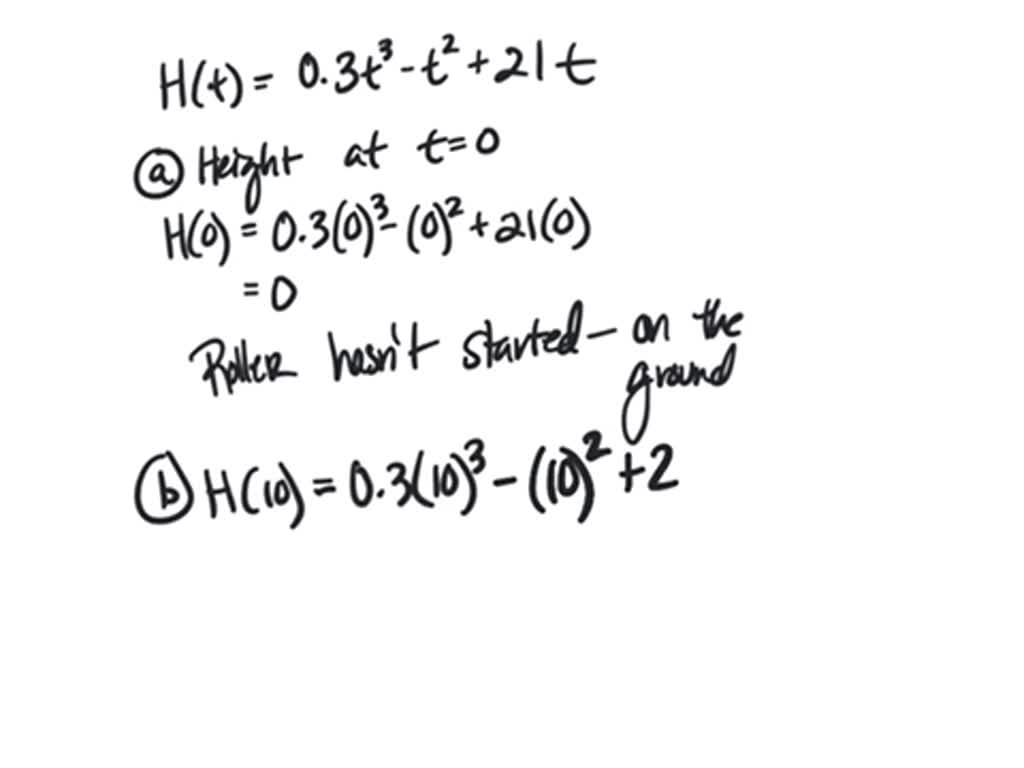 H(t) = 0.3t³ - t² + 21t
ⓐ Height at t=0
H(0) = 0.3(0)³ - (0)² + 21(0)
= 0
Roller hasn't started - on the
ground
ⓑ H(10) = 0.3(10)³ - (10)² + 2